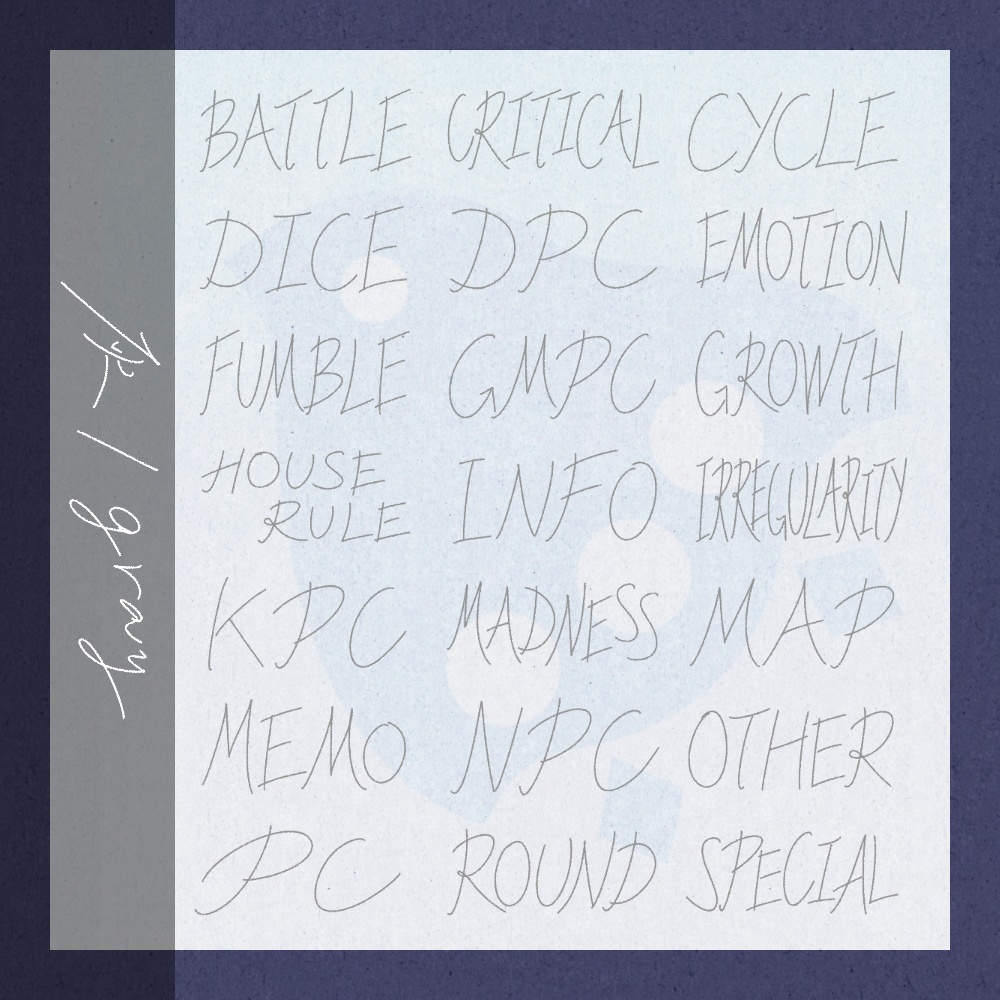 灰 / gray
BATTLE CRITICAL CYCLE
DICE DPC EMOTION
FUMBLE GMPC GROWTH
HOUSE RULE INFO IRREGULARITY
KPC MADNESS MAP
MEMO NPC OTHER
PC ROUND SPECIAL